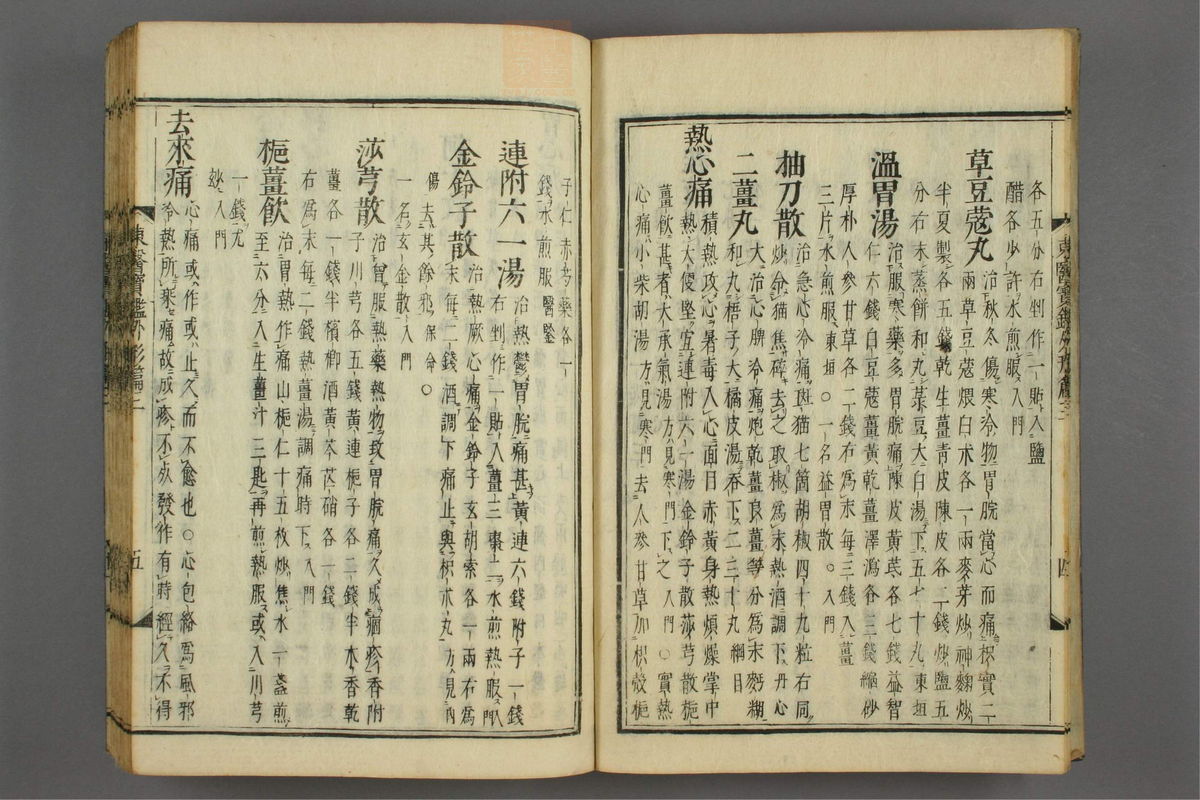 各五分右剉作一貼入鹽
醋各少許水煎服入門
草豆蔻丸 治秋冬傷寒冷物胃脘當心而痛枳實二
兩草豆蔻煨白朮各一兩麥芽炒神麴炒
半夏製各五錢乾生薑青皮陳皮各二錢炒鹽五
分右末蒸餅和丸菉豆大白湯下五七十丸東垣
溫胃湯 治服寒藥多胃脘痛陳皮黃芪各七錢益智
仁六錢白豆蔻薑黃乾薑澤瀉各三錢縮砂
厚朴人參甘草各二錢右爲末每三錢入薑
三片水煎服東垣○一名益胃散○入門
抽刀散 治急心冷痛斑猫七箇胡椒四十九粒右同
炒令猫焦碎去之取椒爲末熱酒調下丹心
二薑丸 大治心脾冷痛炮乾薑良薑等分爲末麪糊
和丸梧子大橘皮湯吞下二三十丸綱目
熱心痛 積熱攻心暑毒入心面目赤黃身熱煩燥掌中
熱大便堅宜連附六一湯金鈴子散莎芎散梔
薑飲甚者大承氣湯方見寒門下之入門○實熱
心痛小柴胡湯方見寒門去人參甘草加枳殼梔
東醫寶鑑外形篇三
四
子仁赤芍藥各一
錢水煎服醫鑒
連附六一湯 治熱鬱胃脘痛甚黃連六錢附子一錢
右剉作一貼入薑三棗二水煎熱服入門
金鈴子散 治熱厥心痛金鈴子玄胡索各一兩右爲
末每二錢酒調下痛止與枳朮丸方見內
傷去其餘邪保命○
一名玄金散入門
莎芎散 治曾服熱藥熱物致胃脘痛久成痼疹香附
子川芎各五錢黃連梔子各二錢半木香乾
薑各一錢半檳榔酒黃芩芒硝各一錢
右爲末每二錢熱薑湯調痛時下入門
梔薑飲 治胃熱作痛山梔仁十五枚炒焦水一盞煎
至六分入生薑汁三匙再煎熱服或入川芎
一錢尤
妙入門
去來痛 心痛或作或止久而不愈也○心包絡爲風邪
冷熱所乘痛故成疹不死發作有時經久不得
東醫寶鑑外形篇三
五